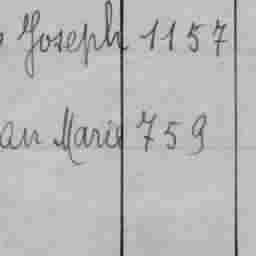 Joseph 1157
an Marie 759